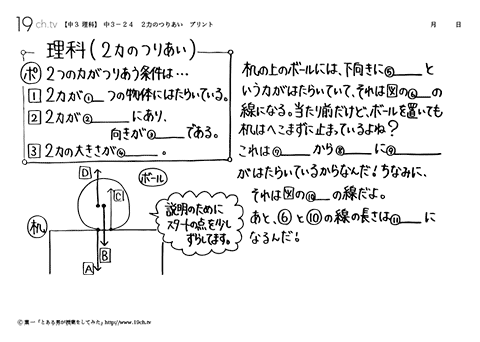 19ch.tv 【中3 理科】 中3-24 2力のつりあい プリント 月 日
理科(2力のつりあい)
ポ 2つの力がつりあう条件は…
1 2力が①__つの物体にはたらいている。
2 2力が②______にあり、
向きが③______である。
3 2力の大きさが④______。
机の上のボールには、下向きに⑤______と
いう力がはたらいていて、それは図の⑥__の
線になる。当たり前だけど、ボールを置いても
机はへこまずに止まっているよね?
これは⑦______から⑧______に⑨______
がはたらいているからなんだ!ちなみに、
それは図の⑩__の線だよ。
あと、⑥と⑩の線の長さは⑪____に
なるんだ!
D
ボール
C
机
B
A
説明のために
スタートの点を少し
ずらしてます。
© 葉一「とある男が授業をしてみた」http://www.19ch.tv